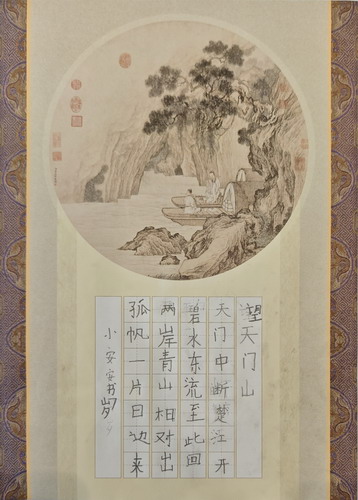 望天门山
天门中断楚江开
碧水东流至此回
两岸青山相对出
孤帆一片日边来
小安安书